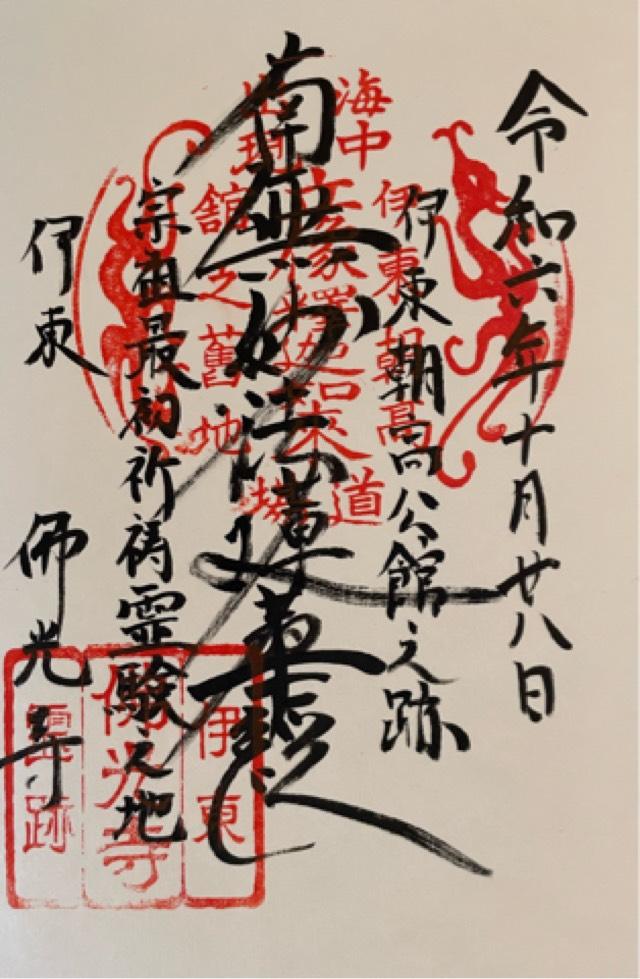 令和六年十月廿八日
伊東朝高公館之跡
南無妙法蓮華経
宗祖最初祈祷霊験之地
伊東 佛光寺
海中
出現
伊東朝高
立像釋迦如来
道場
舘之舊地
伊東
佛光寺
霊跡